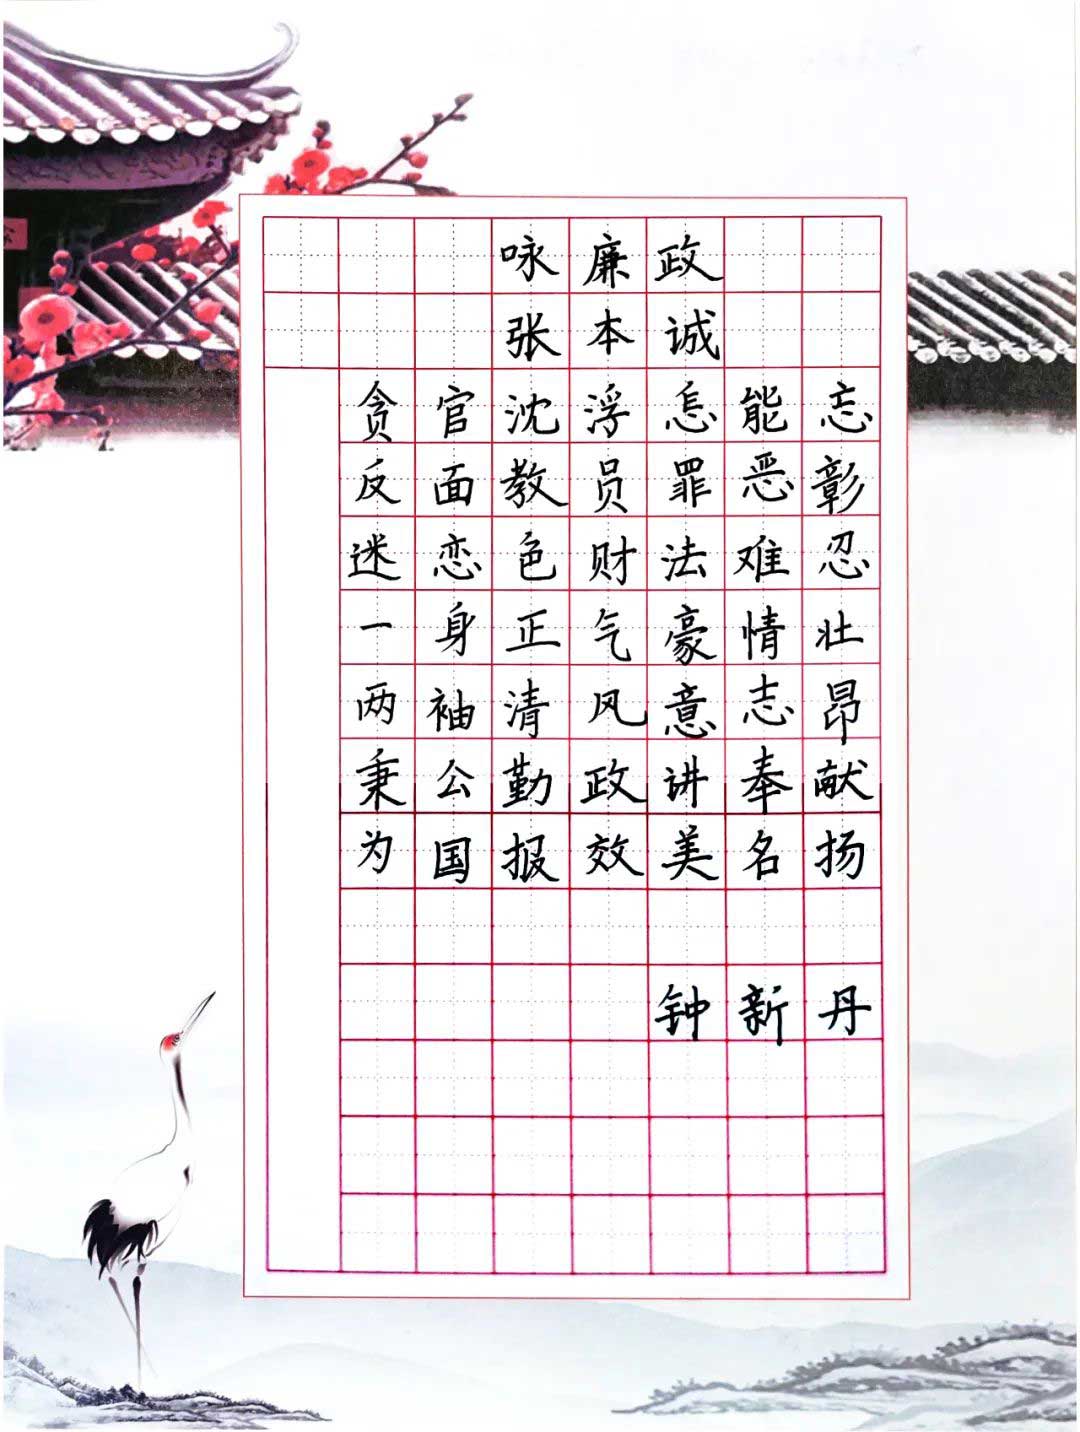 咏廉政
张本诚
贪官沈浮怎能忘
反面教员罪恶彰
迷恋色财法难忍
一身正气豪情壮
两袖清风意志昂
秉公勤政讲奉献
为国报效美名扬
钟新丹